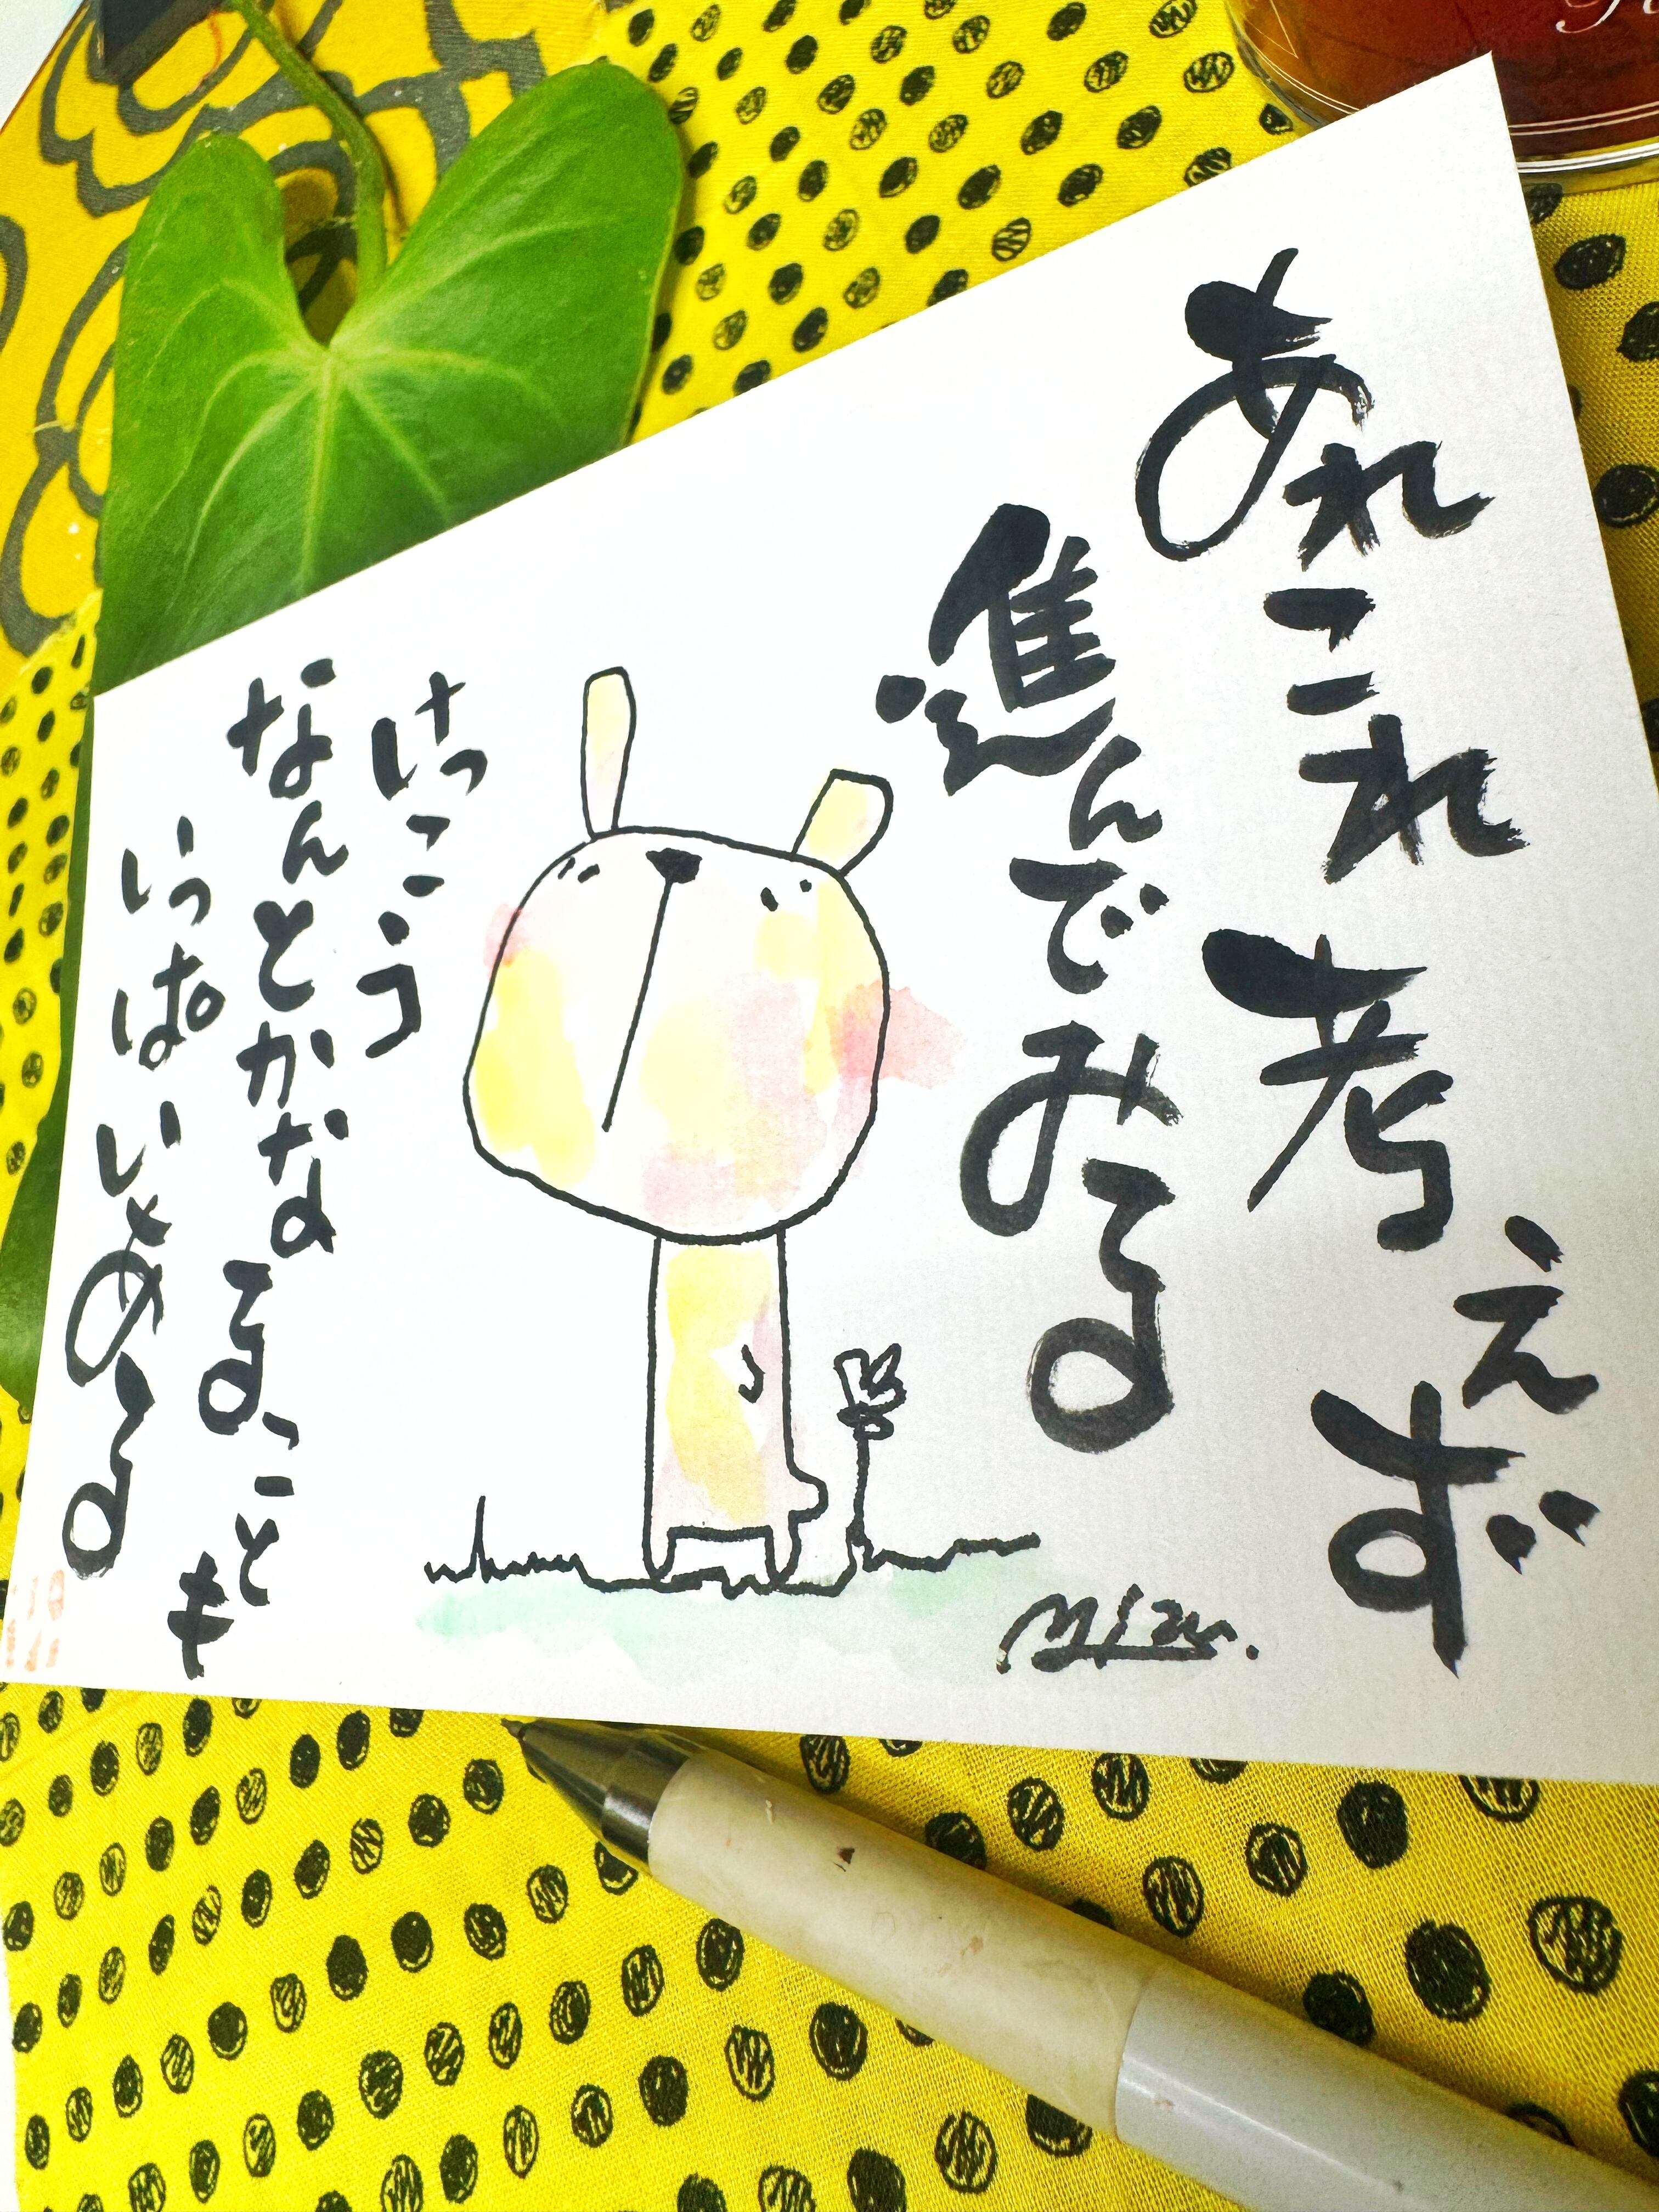 あれこれ考えず
進んでみる
けっこう
なんとかなることも
いっぱいある